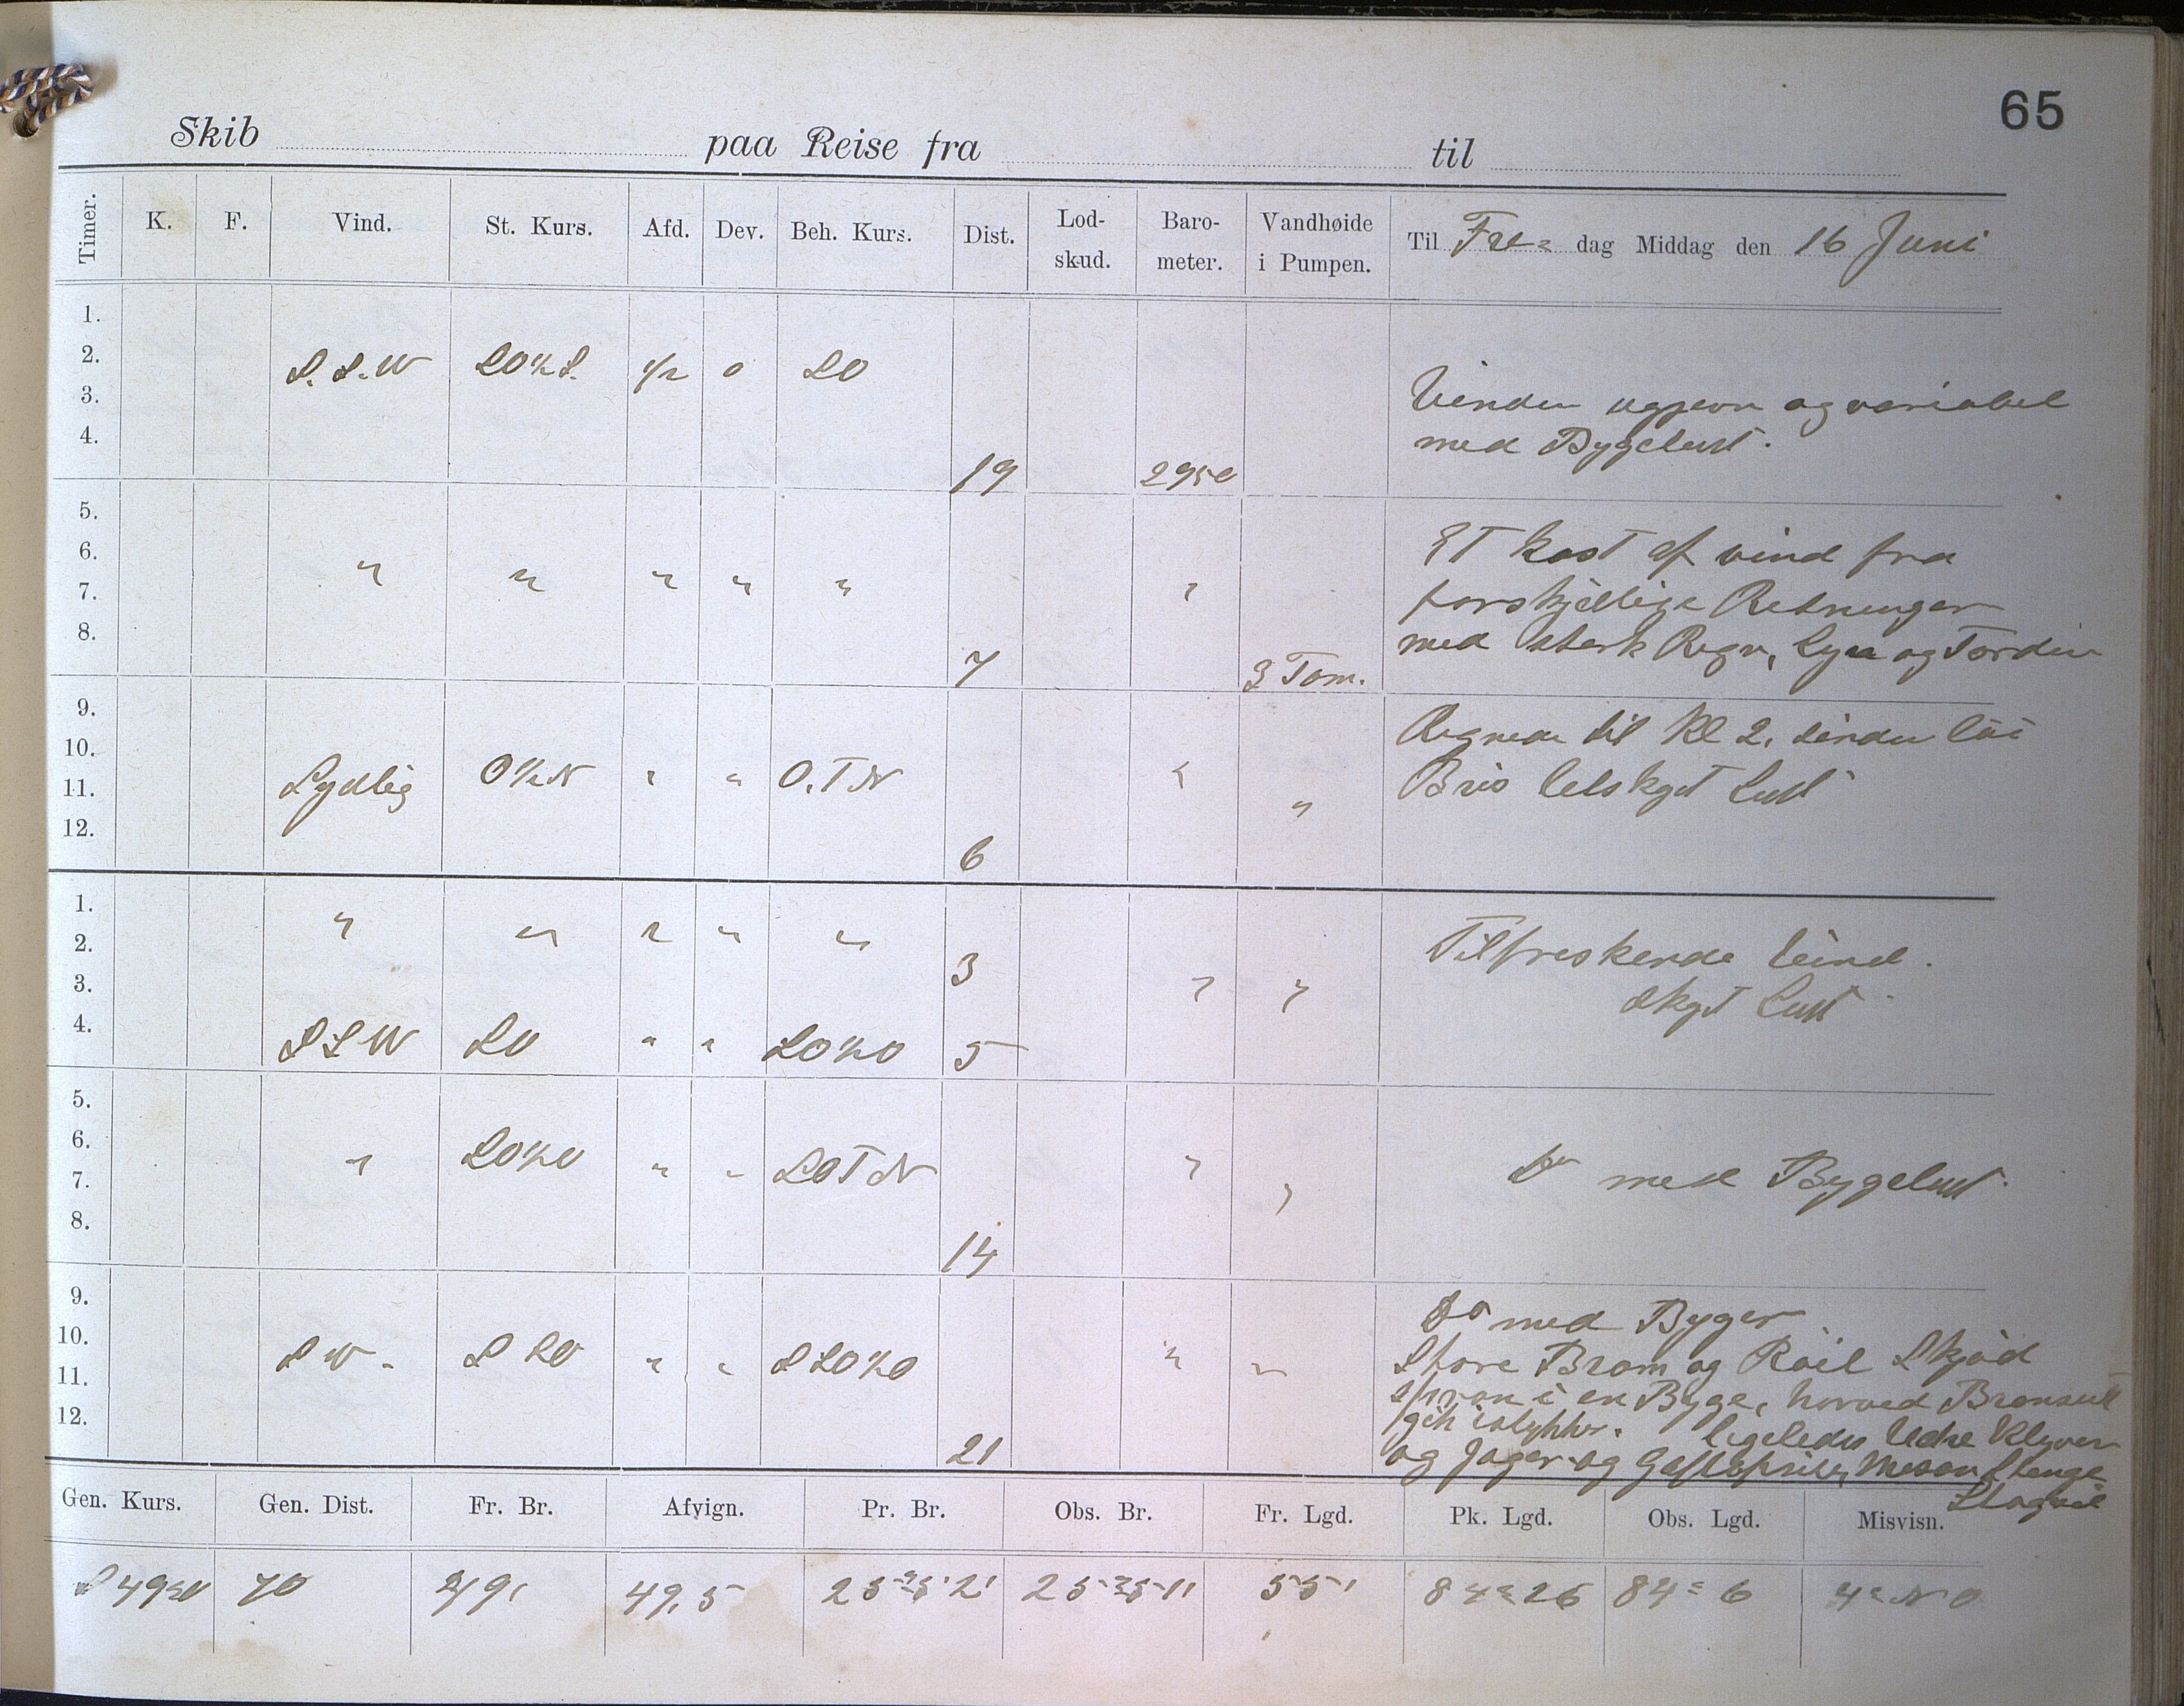 65
Skib paa Reise fra til
Timer. K. F. Vind. St. Kurs. Afd. Dev. Beh. Kurs. Dist. Lod-skud. Baro-meter. Vandhøide i Pumpen. Til Fre= dag Middag den 16 Juni
1.
2. S.S.W SO½S. ½ 0 SO
3. Vinden ugjevn og variabel
4. med Bygeluft.
19 2950
5.
6. Et kast af vind fra
" " " " " "
7. forskjellige Retninger
8. med sterk Regn, Lyn og Torden
7 3 Tom.
9. Regnede til Kl 2, siden løi
10. Bris letskyet Luft
11. Sydlig O½N " " O.T.N " "
12.
6
1. " " " " "
2. 3 Tilfriskende Vind.
3. " " skyt Luft
4. SSW SO " " SO½O 5
5.
6. " SO½O " " SOTN " "
7. Do med Bygeluft.
8.
14
9. Do med Byger
10. SW. SSO " " SSO½O " "
Store Bram og Røil Skjød
11. sprang i en Byge, hvorved Bramseil
12. gik istykker. ligeledes Udre Klyver
21 og Jager og Gaffeltopseil, Mesan Stenge
Stagseil
Gen. Kurs. Gen. Dist. Fr. Br. Afvign. Pr. Br. Obs. Br. Fr. Lgd. Pk. Lgd. Obs. Lgd. Misvisn.
70 49,5 55' 84=26 84=6 4=NO